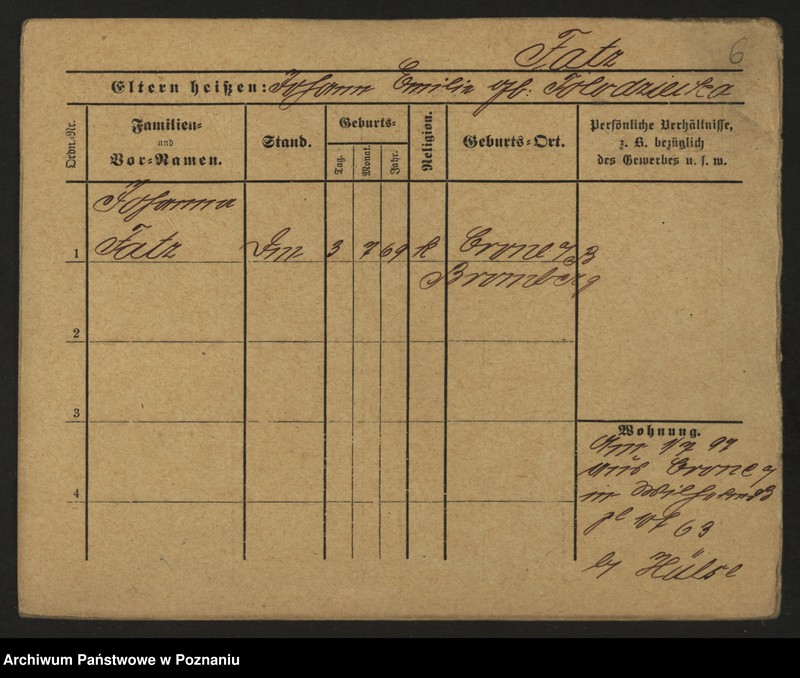 Fatz 6
Eltern heißen: Johann Emilie geb:
Ordn.-Nr.
Familien-
und
Vor-Namen.
Stand.
Geburts-
Tag.
Monat.
Jahr.
Religion.
Geburts-Ort.
Persönliche Verhältnisse,
z. B. bezüglich
des Gewerbes u. s. w.
Johanna
1 Fatz 3 7 69 k Crone a/B
Bromberg
2
3
4
Wohnung.
aus Crone a/
in
63
by Hülse
Archiwum Państwowe w Poznaniu